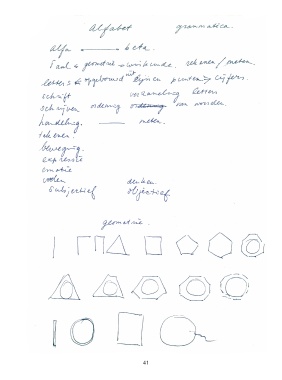 Alfabet grammatica
alfa beta.
Taal + geometrie → wiskunde. rekenen / meten.
letters opgebouwd uit lijnen punten → cijfers.
schrift verzameling letters
schrijven ordening van woorden.
handeling. meten.
tekenen.
beweging.
expressie
emotie
voelen denken
Subjectief objectief
geometrie.
41